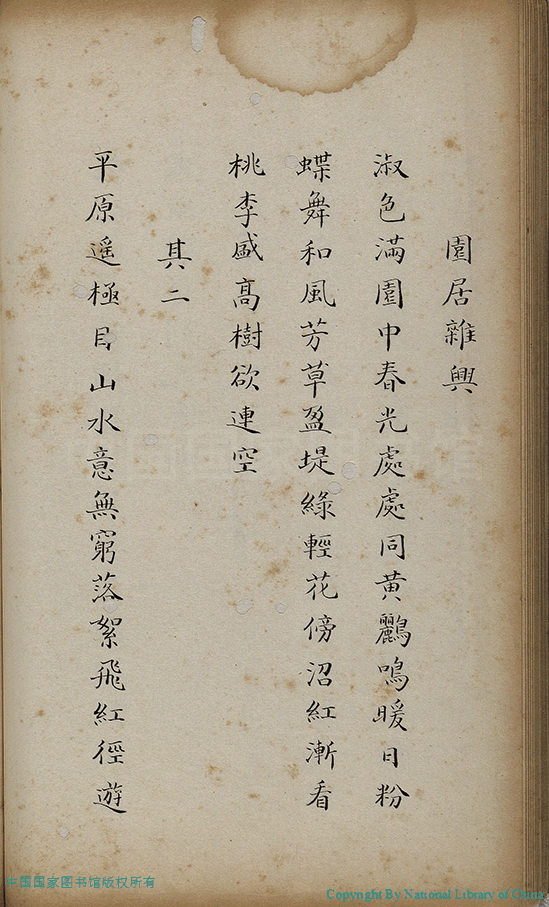 園居雜興
淑色滿園中春光處處同黃鸝鳴暖日粉
蝶舞和風芳草盈堤綠輕花傍沼紅漸看
桃李盛高樹欲連空
其二
平原遥極目山水意無窮落絮飛紅徑遊
中国国家图书馆版权所有
Copyright By National Library of China